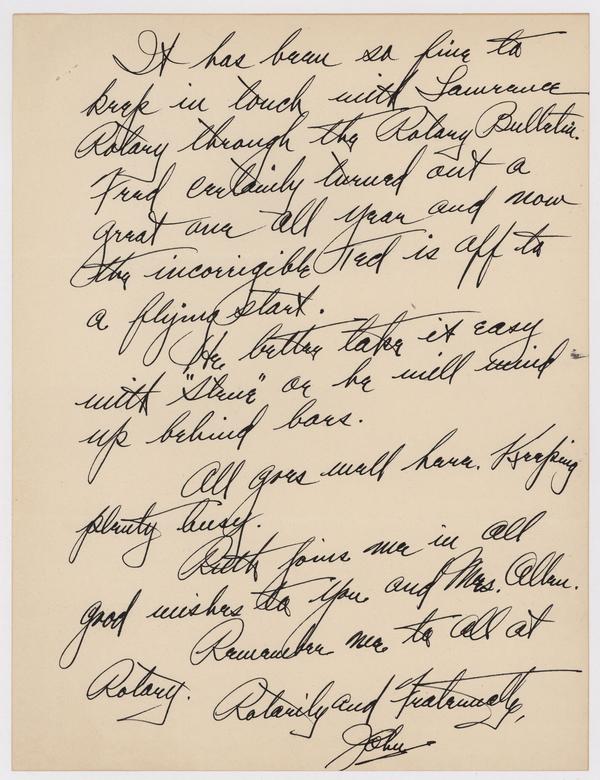 It has been so fine to
keep in touch with Lawrence
Rotary through the Rotary Bulletin.
Fred certainly turned out a
great one all year and now
the incorrigible Ted is off to
a flying start.
He better take it easy
with "Steve" or he will wind
up behind bars.
All goes well here. Keeping
plenty busy.
Ruth joins me in all
good wishes to you and Mrs. Allen.
Remember me to all at
Rotary.
Rotarily and Fraternally,
John